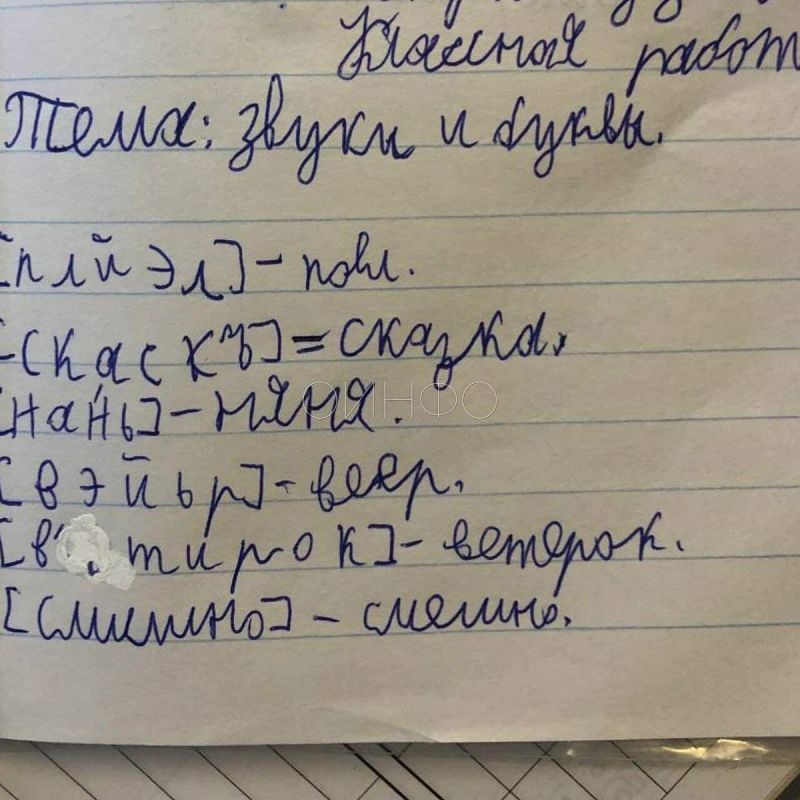 Классная работ
Тема: звуки и буквы.
[плйэл] - поел.
[скаскъ] = сказка.
[нань] - няня.
[вэйьр] - веер.
[в'тирок] - ветерок.
[смишно] - смешно.
ФИНФО